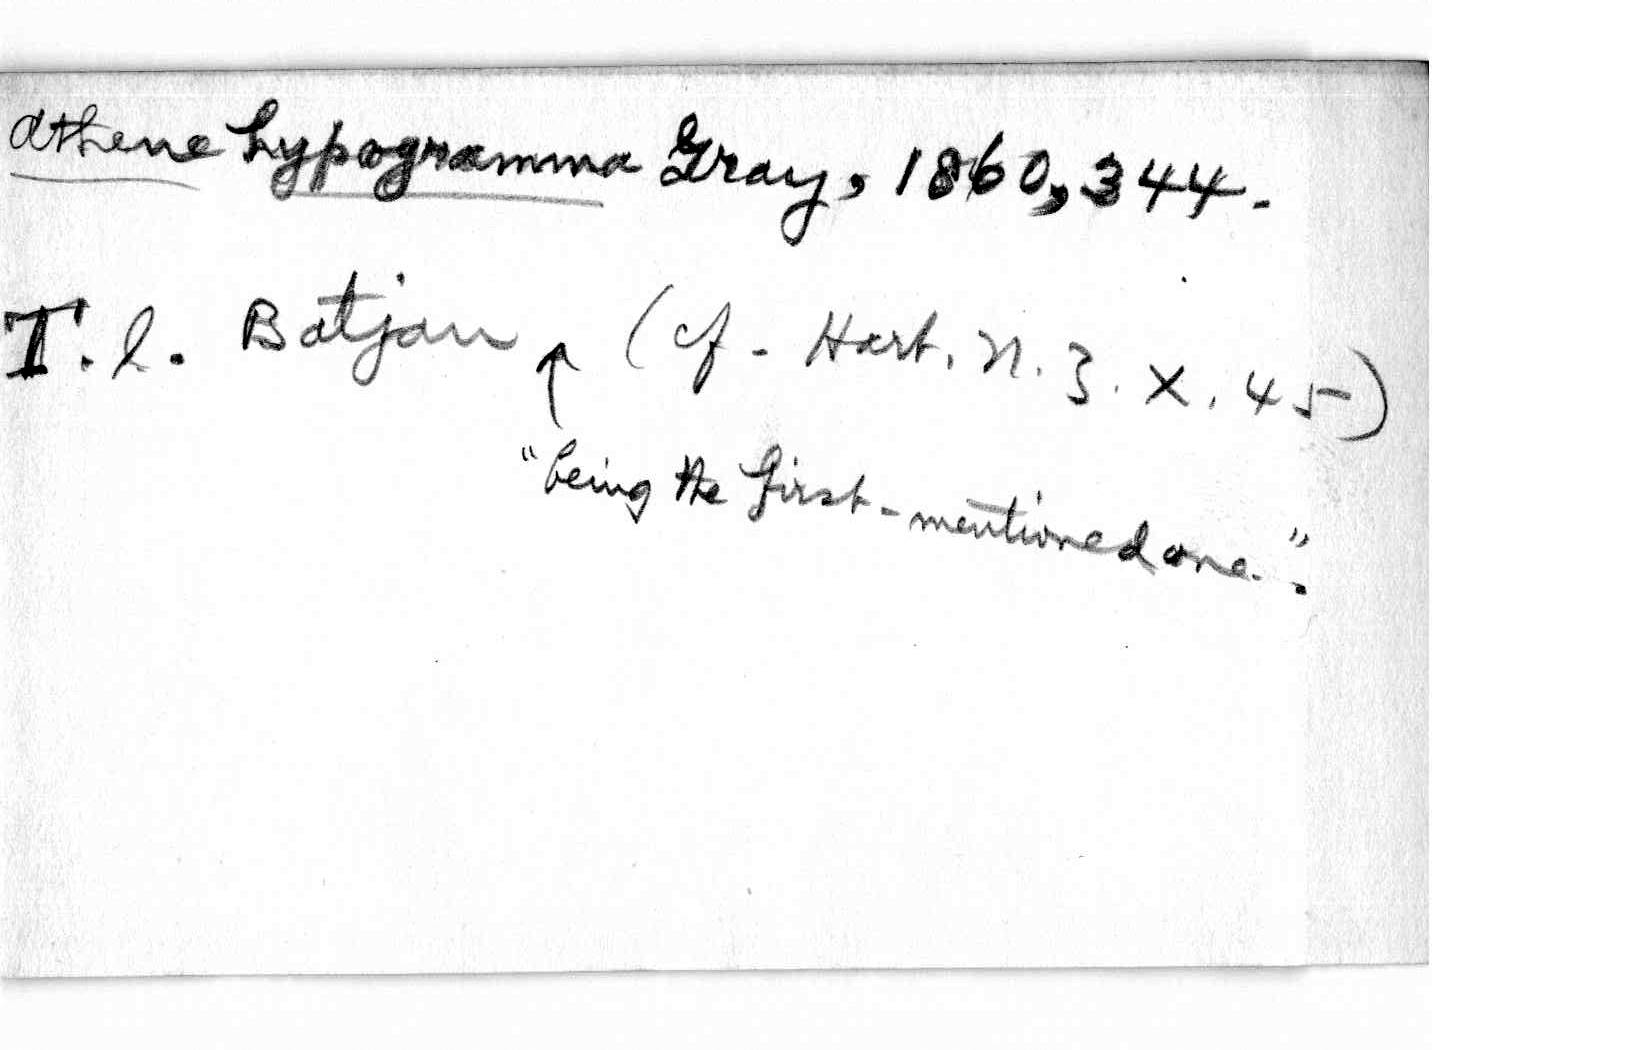 Athene hypogramma Gray, 1860, 344.
T. l. Batjan ↑ (cf. Hart. N. Z. X. 45)
"being the first-mentioned one.".